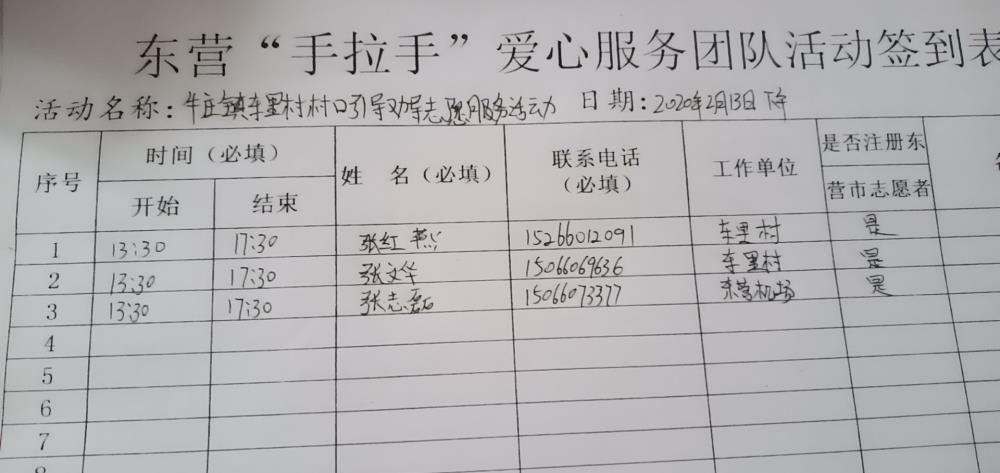 东营“手拉手”爱心服务团队活动签到表
活动名称：牛庄镇车里村村口引导劝导志愿服务活动 日期：2020年2月13日下午
序号 时间（必填） 姓 名（必填） 联系电话（必填） 工作单位 是否注册东营市志愿者
开始 结束
1 13:30 17:30 张红燕 15266012091 车里村 是
2 13:30 17:30 张文华 15066069636 车里村 是
3 13:30 17:30 张志磊 15066073377 东营机场 是
4
5
6
7